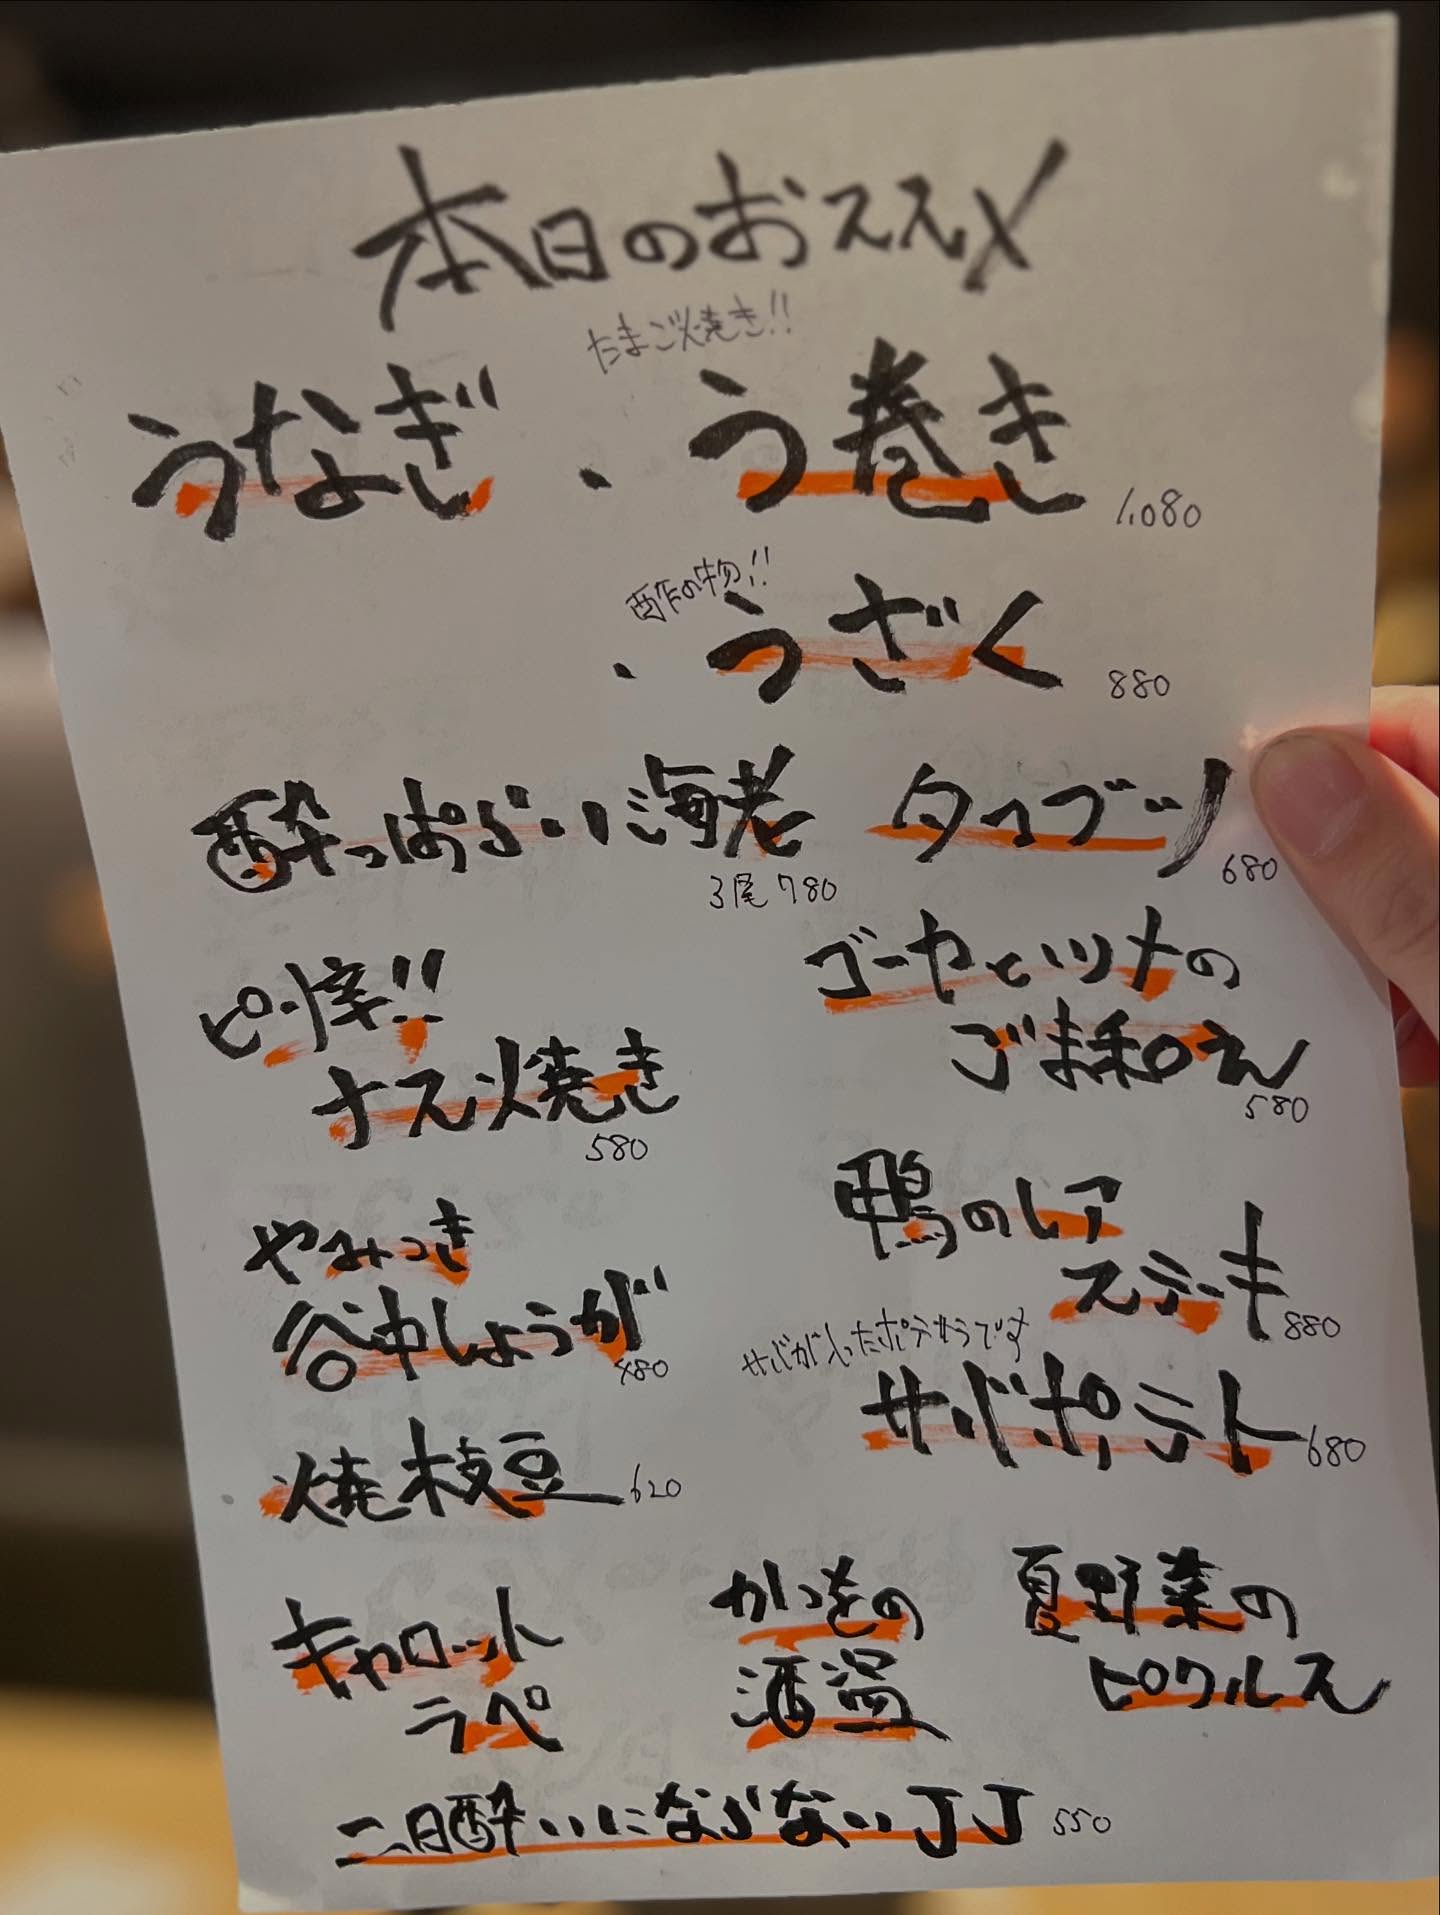 本日のおススメ
たまご焼き!!
うなぎ、う巻き 1,080
酢の物!!
、うざく 880
酔っぱらい海老 3尾 780
タコブツ 680
ピリ辛!!
ナス焼き 580
ゴーヤとツナの
ごま和え 580
やみつき
谷中しょうが 480
鴨のレア
ステーキ 880
サバが入ったポテサラです
サバポテト 680
焼枝豆 620
キャロット
ラペ
かつをの
酒盗
夏野菜の
ピクルス
二日酔いにならないJJ 550